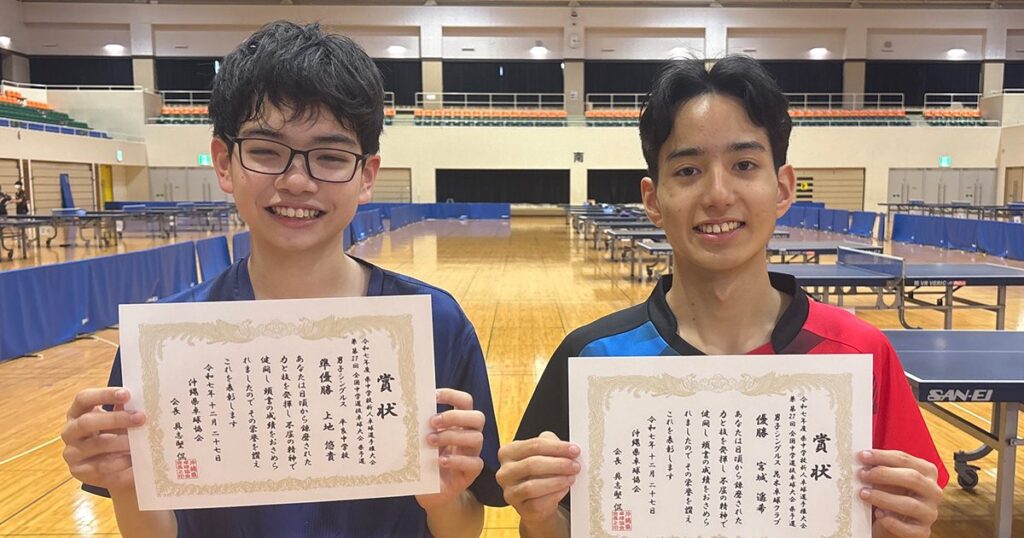 賞状
令和七年度 県中学校新人卓球選手権大会
兼 第27回 全国中学選抜卓球大会 県予選
男子シングルス 平良中学校
準優勝 上地 悠貴
あなたは日頃から錬磨された
力と技を発揮し、不屈の精神で
健闘し頭書の成績をおさめら
れましたので その栄誉を讃え
これを表彰します
令和七年十二月二十七日
沖縄県卓球協会
会長
賞状
令和七年度 県中学校新人卓球選手権大会
兼 第27回 全国中学選抜卓球大会 県予選
男子シングルス 卓球クラブ
優勝 宮城 遥希
あなたは日頃から錬磨された
力と技を発揮し、不屈の精神で
健闘し頭書の成績をおさめら
れましたので その栄誉を讃え
これを表彰します
令和七年十二月二十七日
沖縄県卓球協会
会長
南
SAN-EI